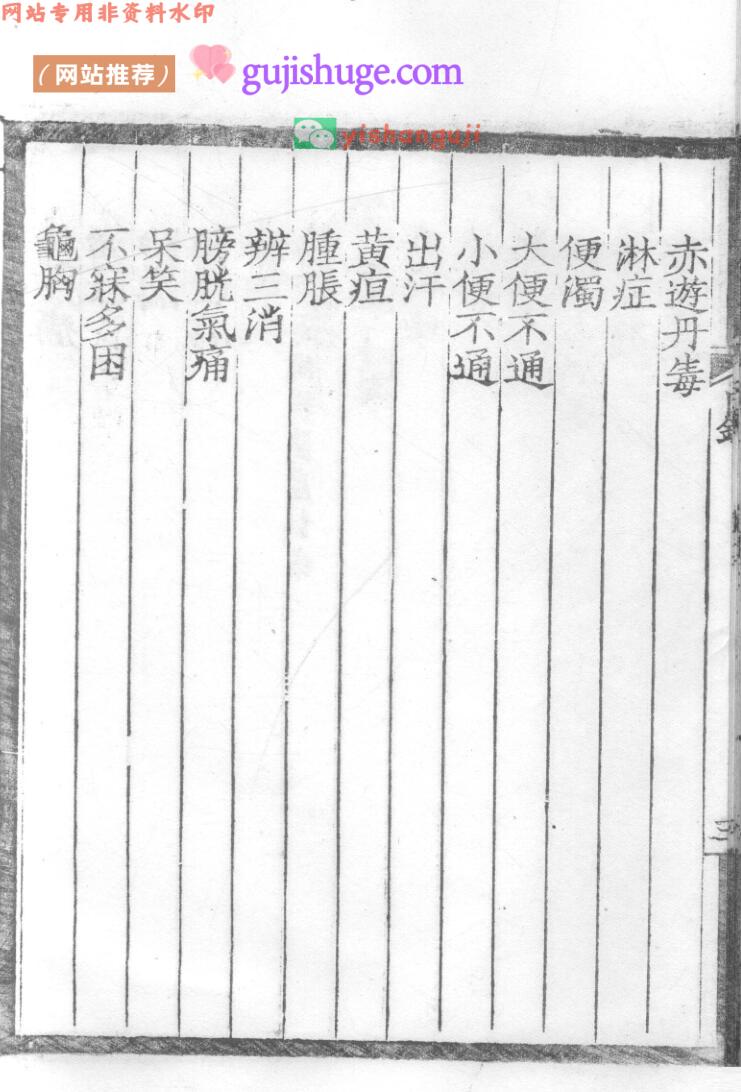 网站专用非资料水印
（网站推荐） gujishuge.com
yishanguji
赤遊丹毒
淋症
便濁
大便不通
小便不通
出汗
黃疸
腫脹
辨三消
膀胱氣痛
呆笑
不寐多困
龜胸